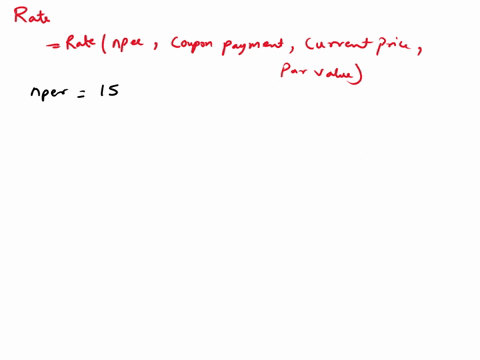 Rate
= Rate ( nper , Coupon payment , Current price ,
Par value )
nper = 15